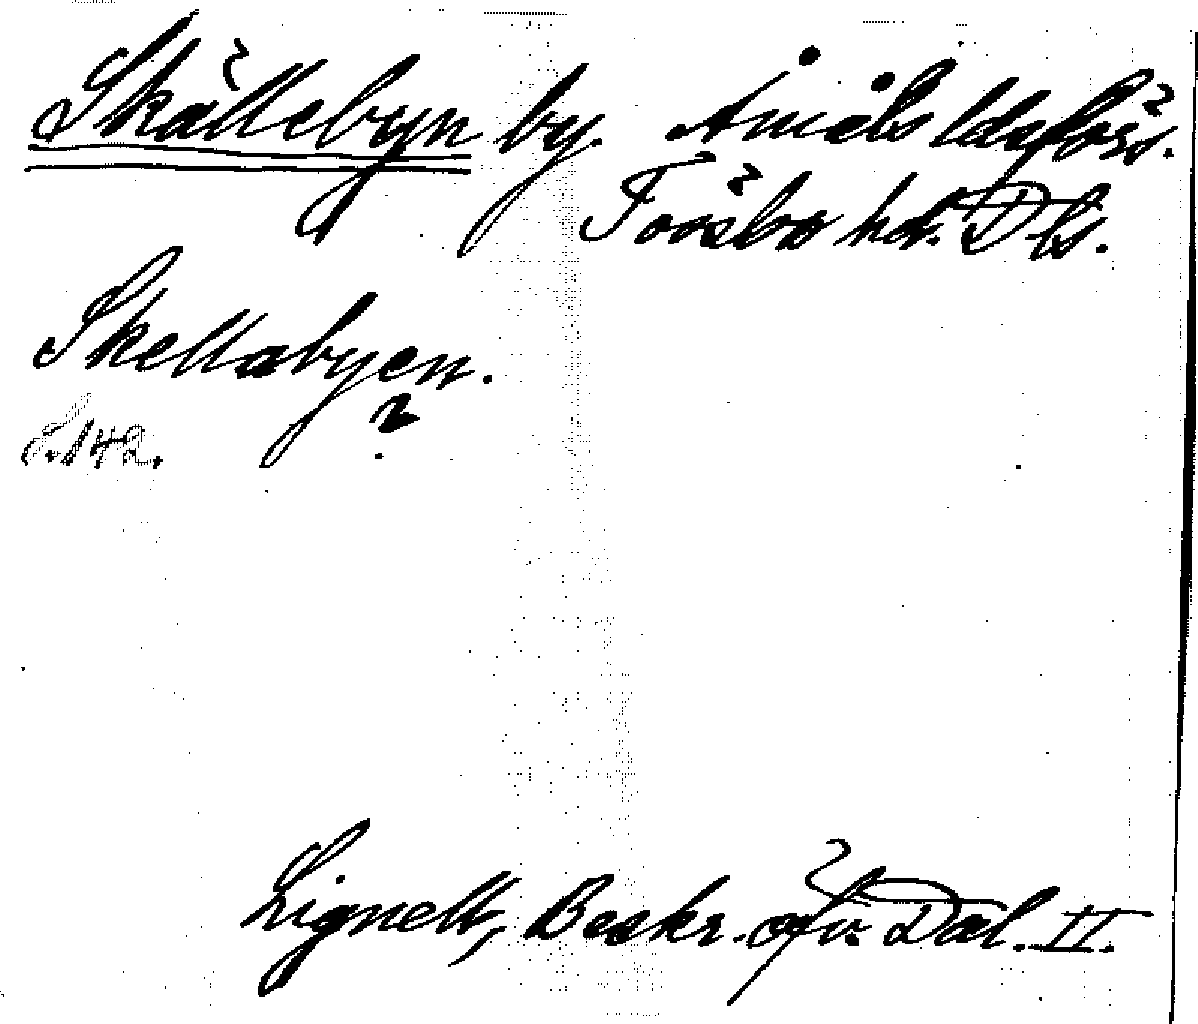 Skällebyn by. Åmåls ldsförs.
Tössbo hd. Dls.
Skellabyen.
?
S. 142.
Lignell, Beskr. öfv. Dal. II.